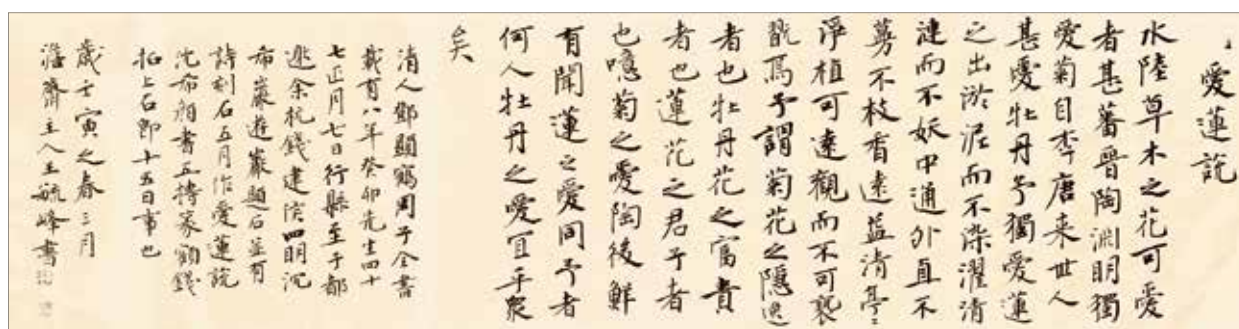 愛蓮説
水陸草木之花可愛
者甚蕃晉陶淵明獨
愛菊自李唐来世人
甚愛牡丹予獨愛蓮
之出淤泥而不染濯清
漣而不妖中通外直不
蔓不枝香遠益清亭〻
淨植可遠觀而不可褻
翫焉予謂菊花之隱逸
者也牡丹花之富貴
者也蓮花之君子者
也噫菊之愛陶後鮮
有聞蓮之愛同予者
何人牡丹之愛宜乎衆
矣
清人鄧顯鶴周子全書
載有八年癸卯先生四十
七正月七日行縣至于都
邀余杭錢建侯四明沉
希顏遊巖題石並有
詩刻石五月作愛蓮説
沈希顏書五摶篆額錢
拓上石即十五日事也
歲壬寅之春三月
齋主人王毓峰書